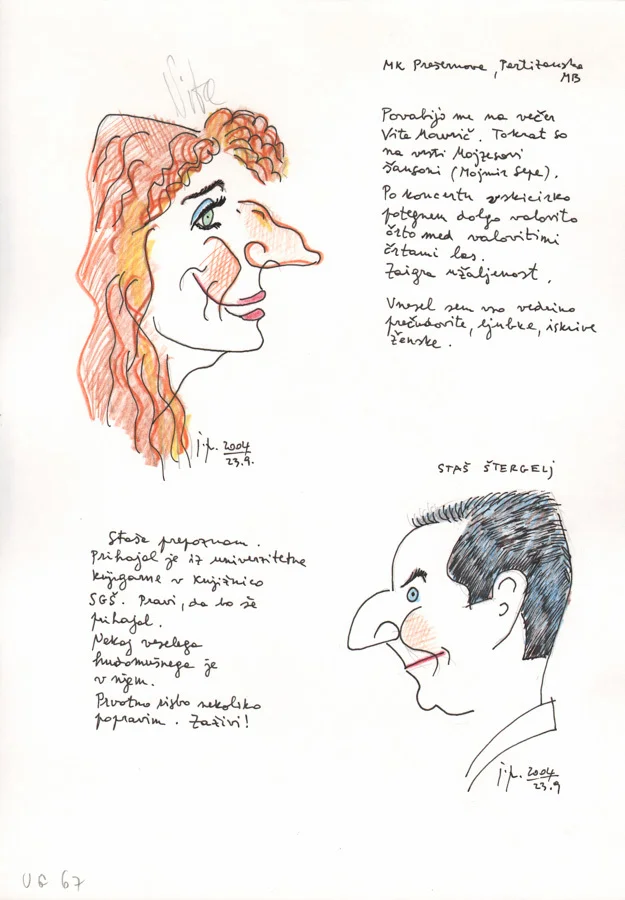 Vita
MK Prešernova, Partizanska
MB
Povabijo me na večer
Vite Mavrič. Tokrat so
na vrsti Mojzesovi
šansoni (Mojmir Sepe).
Po koncertu zskicirko
potegnem dolgo valovito
črto med valovitimi
črtami las.
Zaigra užaljenost.
Vnesel sem vso vedrino
prečudovite, ljubke, iskrive
ženske.
j.p. 2004
23.9.
STAŠ ŠTERGELJ
Staša prepoznam.
Prihajal je iz univerzitetne
knjigarne v Knjižnico
SGŠ. Pravi, da bo še
prihajal.
Nekaj veselega
hudomušnega je
v njem.
Prvotno risbo nekoliko
popravim. Zaživi!
j.p. 2004
23.9
UG 67